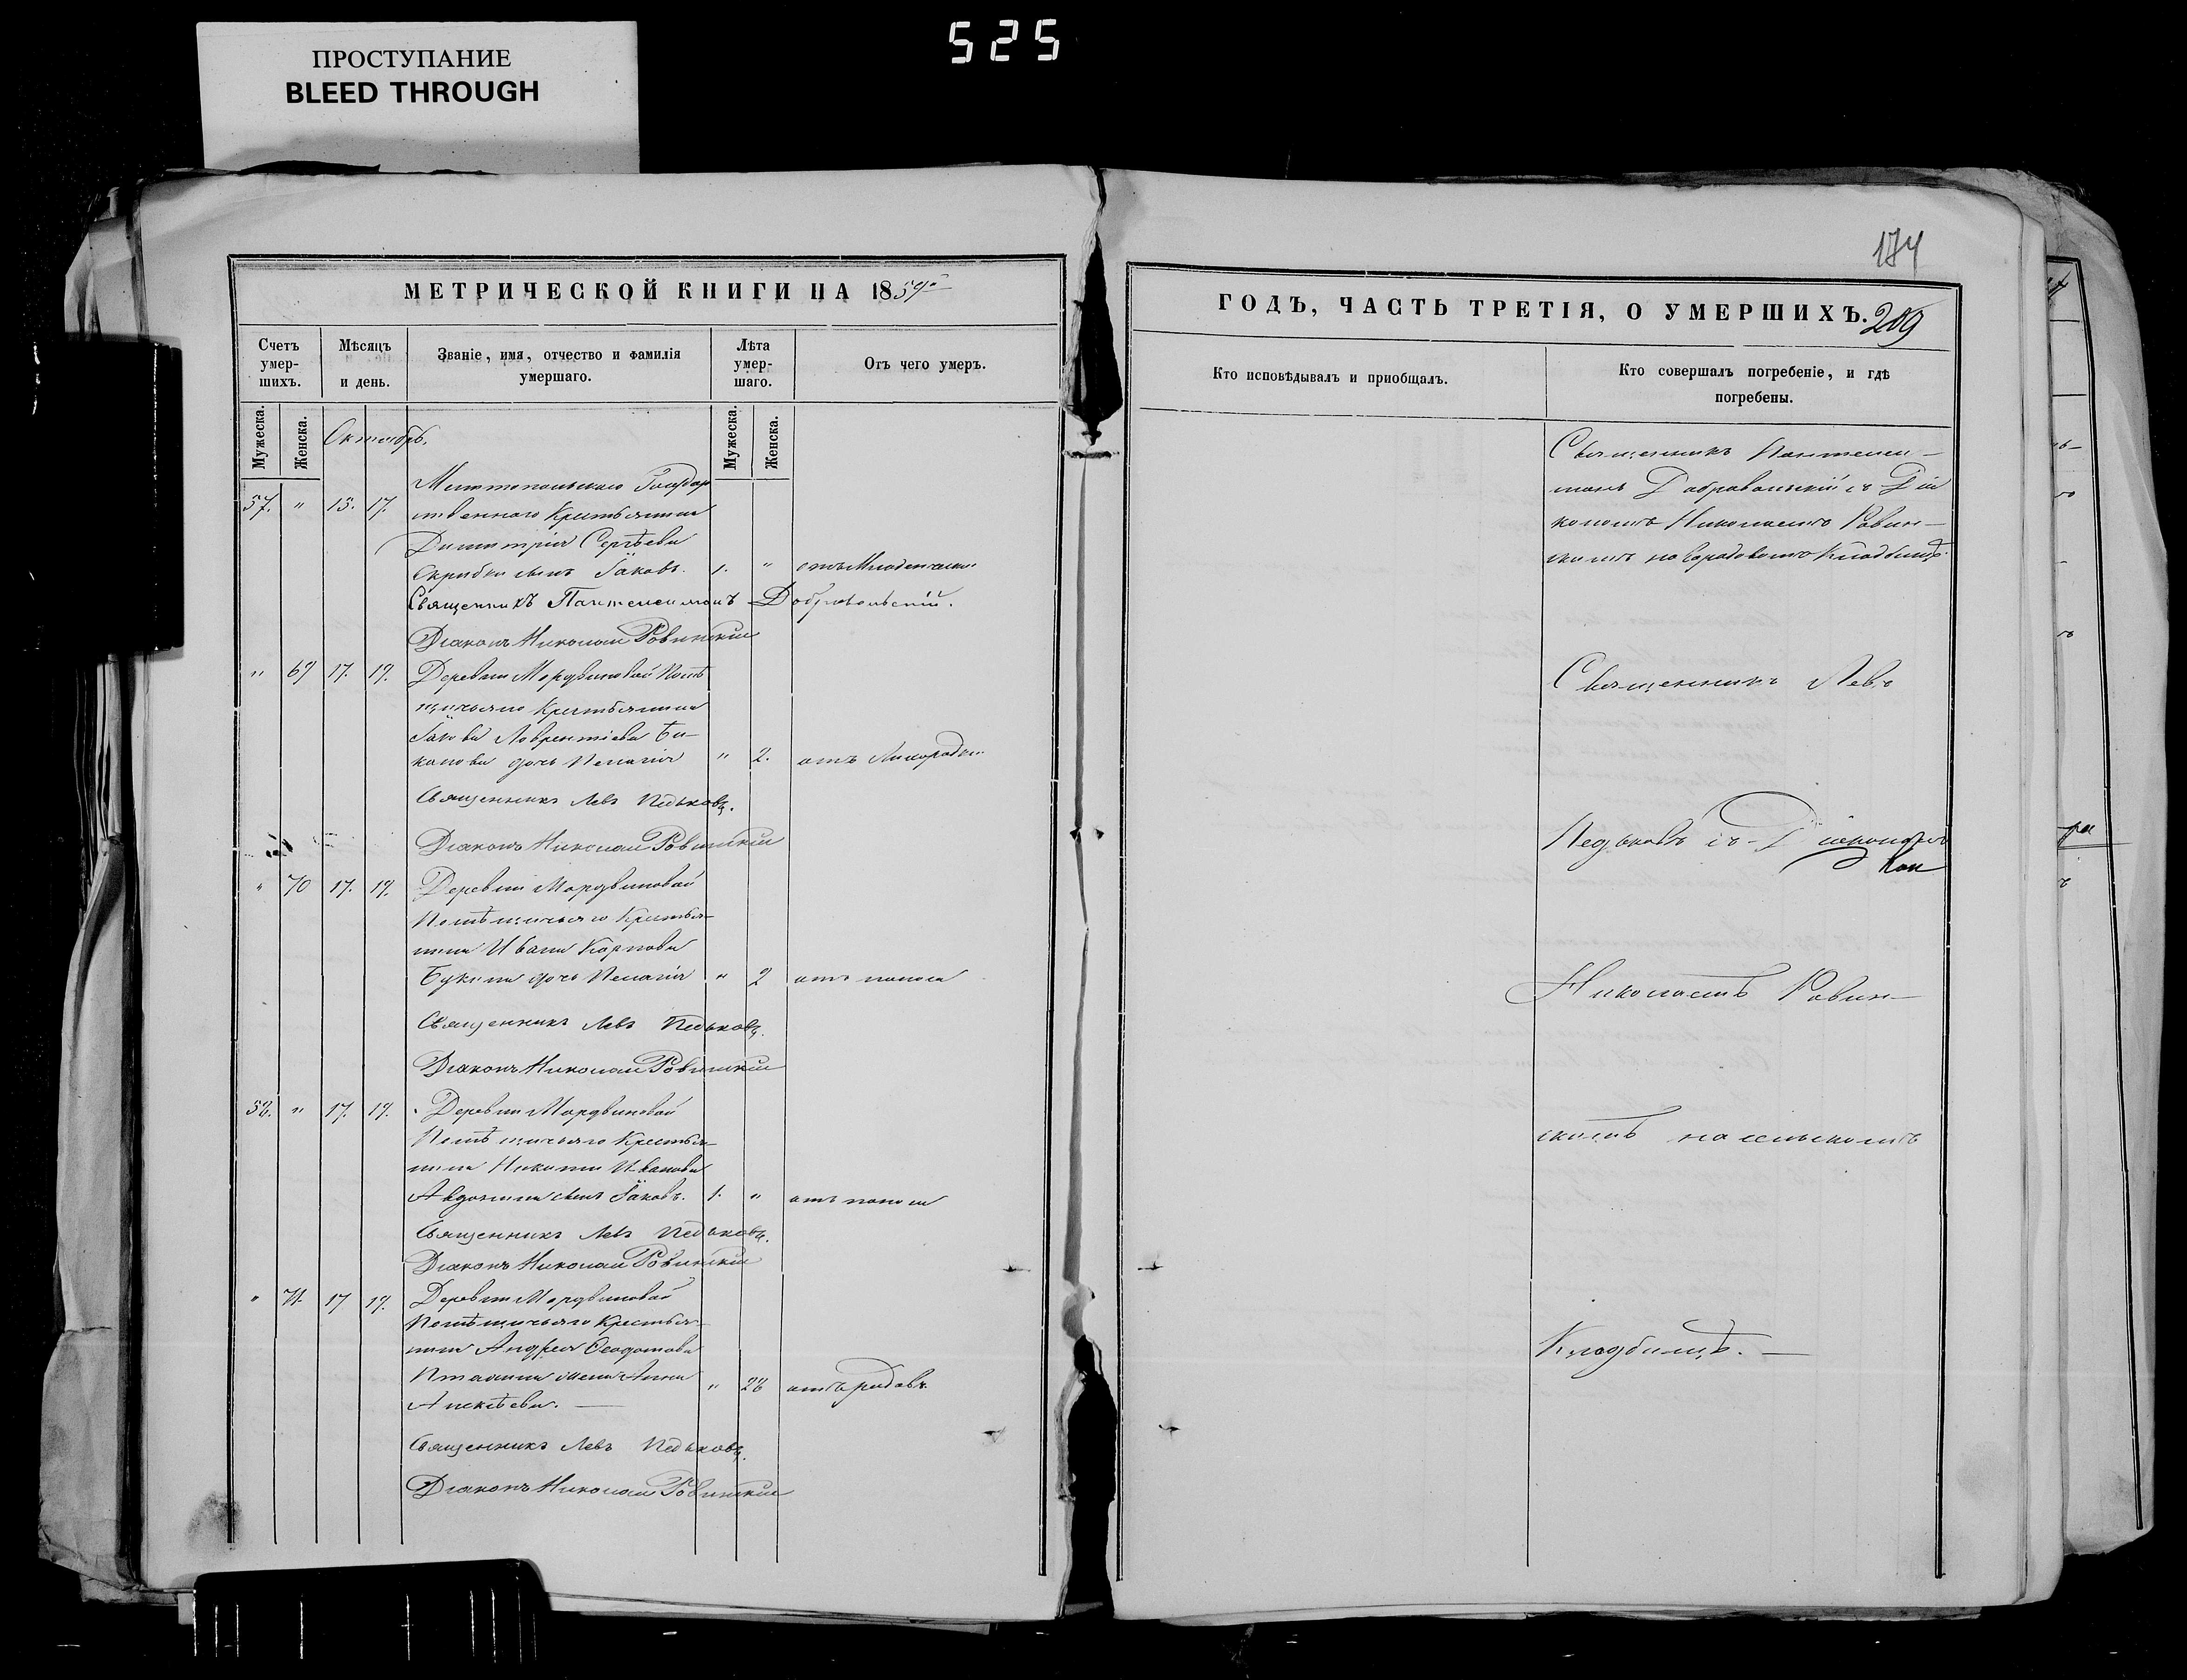 525
ПРОСТУПАНИЕ
BLEED THROUGH
МЕТРИЧЕСКОЙ КНИГИ НА 1859
Счетъ умершихъ.
Мѣсяцъ и день.
Званіе, имя, отчество и фамилія умершаго.
Лѣта умершаго.
Отъ чего умеръ.
Мужеска.
Женска.
Мужеска.
Женска.
Октябрь.
57. " 15. 17.
Мелитопольскаго Государ
ственнаго Крестьянина
Димитрія Сергѣева
сынъ Іаковъ. 1. "
Священникъ Пантелеимонъ Добровольскій.
Діаконъ Николай Ровинскій
" 69 17. 19. Деревни Мордвиновой Помѣ
щичьяго Крестьянина
Іакова Лаврентіева Би-
кова дочь Пелагія " 2. отъ Лихорадки
Священникъ Левъ Педьковъ.
Діаконъ Николай Ровинскій
" 70 17. 19. Деревни Мордвиновой
Помѣщичьяго Крестья-
нина Ивана Карпова
Букина дочь Пелагія " 2 отъ поноса
Священникъ Левъ Педьковъ.
Діаконъ Николай Ровинскій
58. " 17. 19. Деревни Мордвиновой
Помѣщичьяго Крестья-
нина Никиты Иванова
Авдонина сынъ Іаковъ. 1. " отъ поноса
Священникъ Левъ Педьковъ.
Діаконъ Николай Ровинскій
" 71. 17 19. Деревни Мордвиновой
Помѣщичьяго Крестья-
нина Андрея Ѳеодотова
жена Анна " 28 отъ родовъ.
Алексѣева.
Священникъ Левъ Педьковъ.
Діаконъ Николай Ровинскій
174
ГОДЪ, ЧАСТЬ ТРЕТІЯ, О УМЕРШИХЪ.
209
Кто исповѣдывалъ и приобщалъ.
Кто совершалъ погребеніе, и гдѣ погребены.
Священникъ Пантелеи-
монъ Добровольскій съ Діа
кономъ Николаемъ Ровин-
скимъ на Городовомъ Кладбищѣ.
Священникъ Левъ
Педьковъ съ Діакономъ
Николаемъ Ровин-
скимъ на сельскомъ
Кладбищѣ.